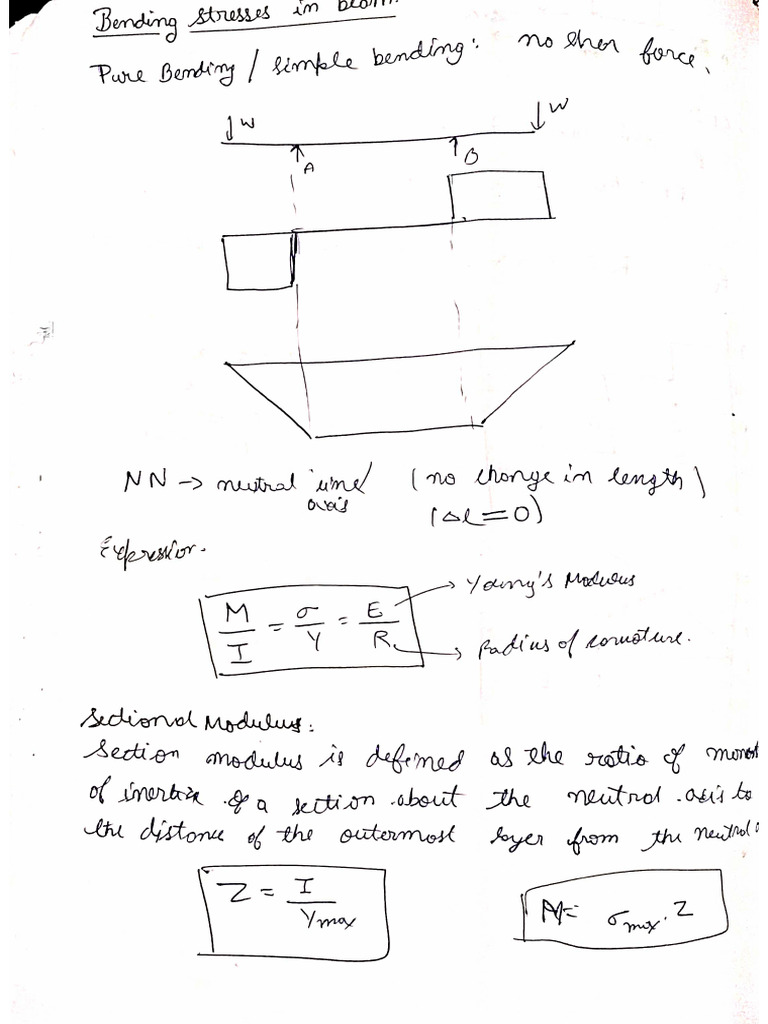 Bending stresses in beam
Pure Bending / simple bending: no sher force.
W
W
A
B
NN → neutral line/ (no change in length)
axis (Δl = 0)
Expression.
M/I = σ/Y = E/R
→ Young's Modulus
→ Radius of curvature.
Sectional Modulus:
Section modulus is defined as the ratio of moment
of inertia of a section about the neutral axis to
the distance of the outermost layer from the neutral
Z = I/Ymax
M = σmax . Z